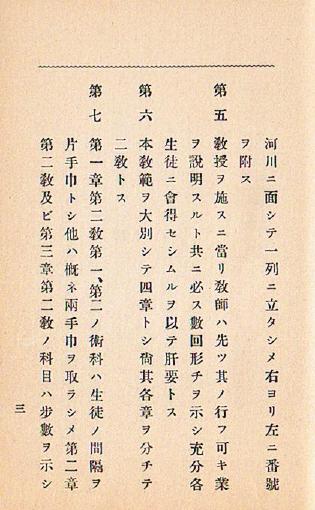 河川ニ面シテ一列ニ立タシメ右ヨリ左ニ番號
ヲ附ス
第五 敎授ヲ施スニ當リ敎師ハ先ツ其ノ行フ可キ業
ヲ說明スルト共ニ必ス數回形チヲ示シ充分各
生徒ニ會得セシムルヲ以テ肝要トス
第六 本敎範ヲ大別シテ四章トシ尙其各章ヲ分チテ
二敎トス
第七 第一章第二敎第一、第二ノ術科ハ生徒ノ間隔ヲ
片手巾トシ他ハ槪ネ兩手巾ヲ取ラシメ第二章
第二敎及ビ第三章第二敎ノ科目ハ步數ヲ示シ
三